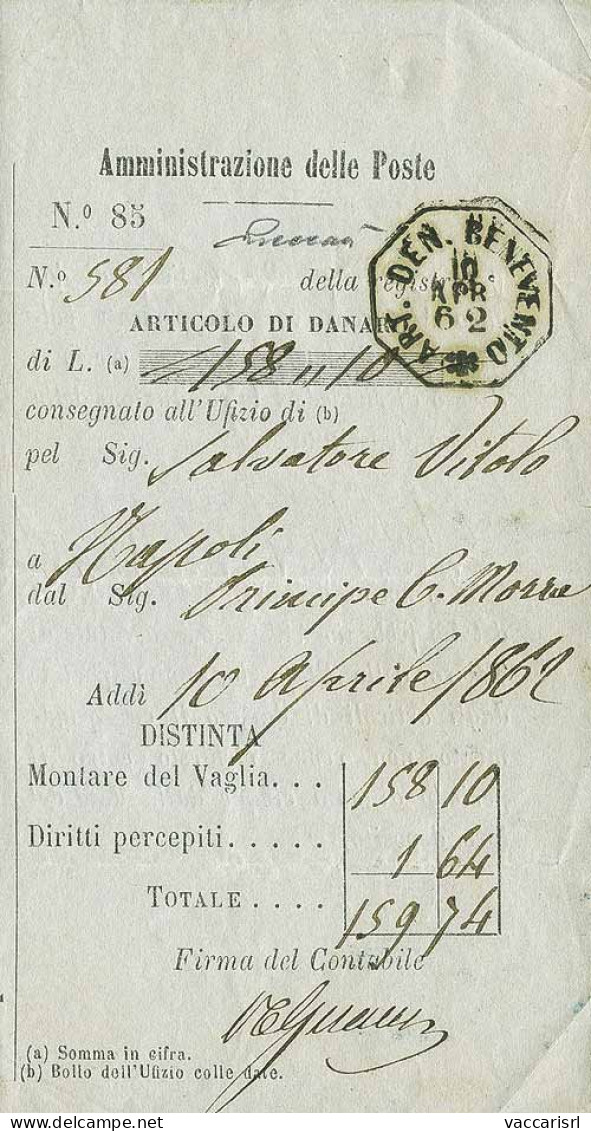 Amministrazione delle Poste
N.º 85
N.º 581 della registraz.e
ART. DEN. BENEVENTO
10
APR
62
ARTICOLO DI DANARO
di L. (a) 158 " 10
consegnato all'Ufizio di (b)
pel Sig. Salvatore Vitolo
a Napoli
dal Sig. Principe C. Morra
Addì 10 Aprile 1862
DISTINTA
Montare del Vaglia. . . 158 10
Diritti percepiti. . . . . 1 64
TOTALE . . . . 159 74
Firma del Contabile
(a) Somma in cifra.
(b) Bollo dell'Ufizio colle date.
delcampe.net
vaccarisrl